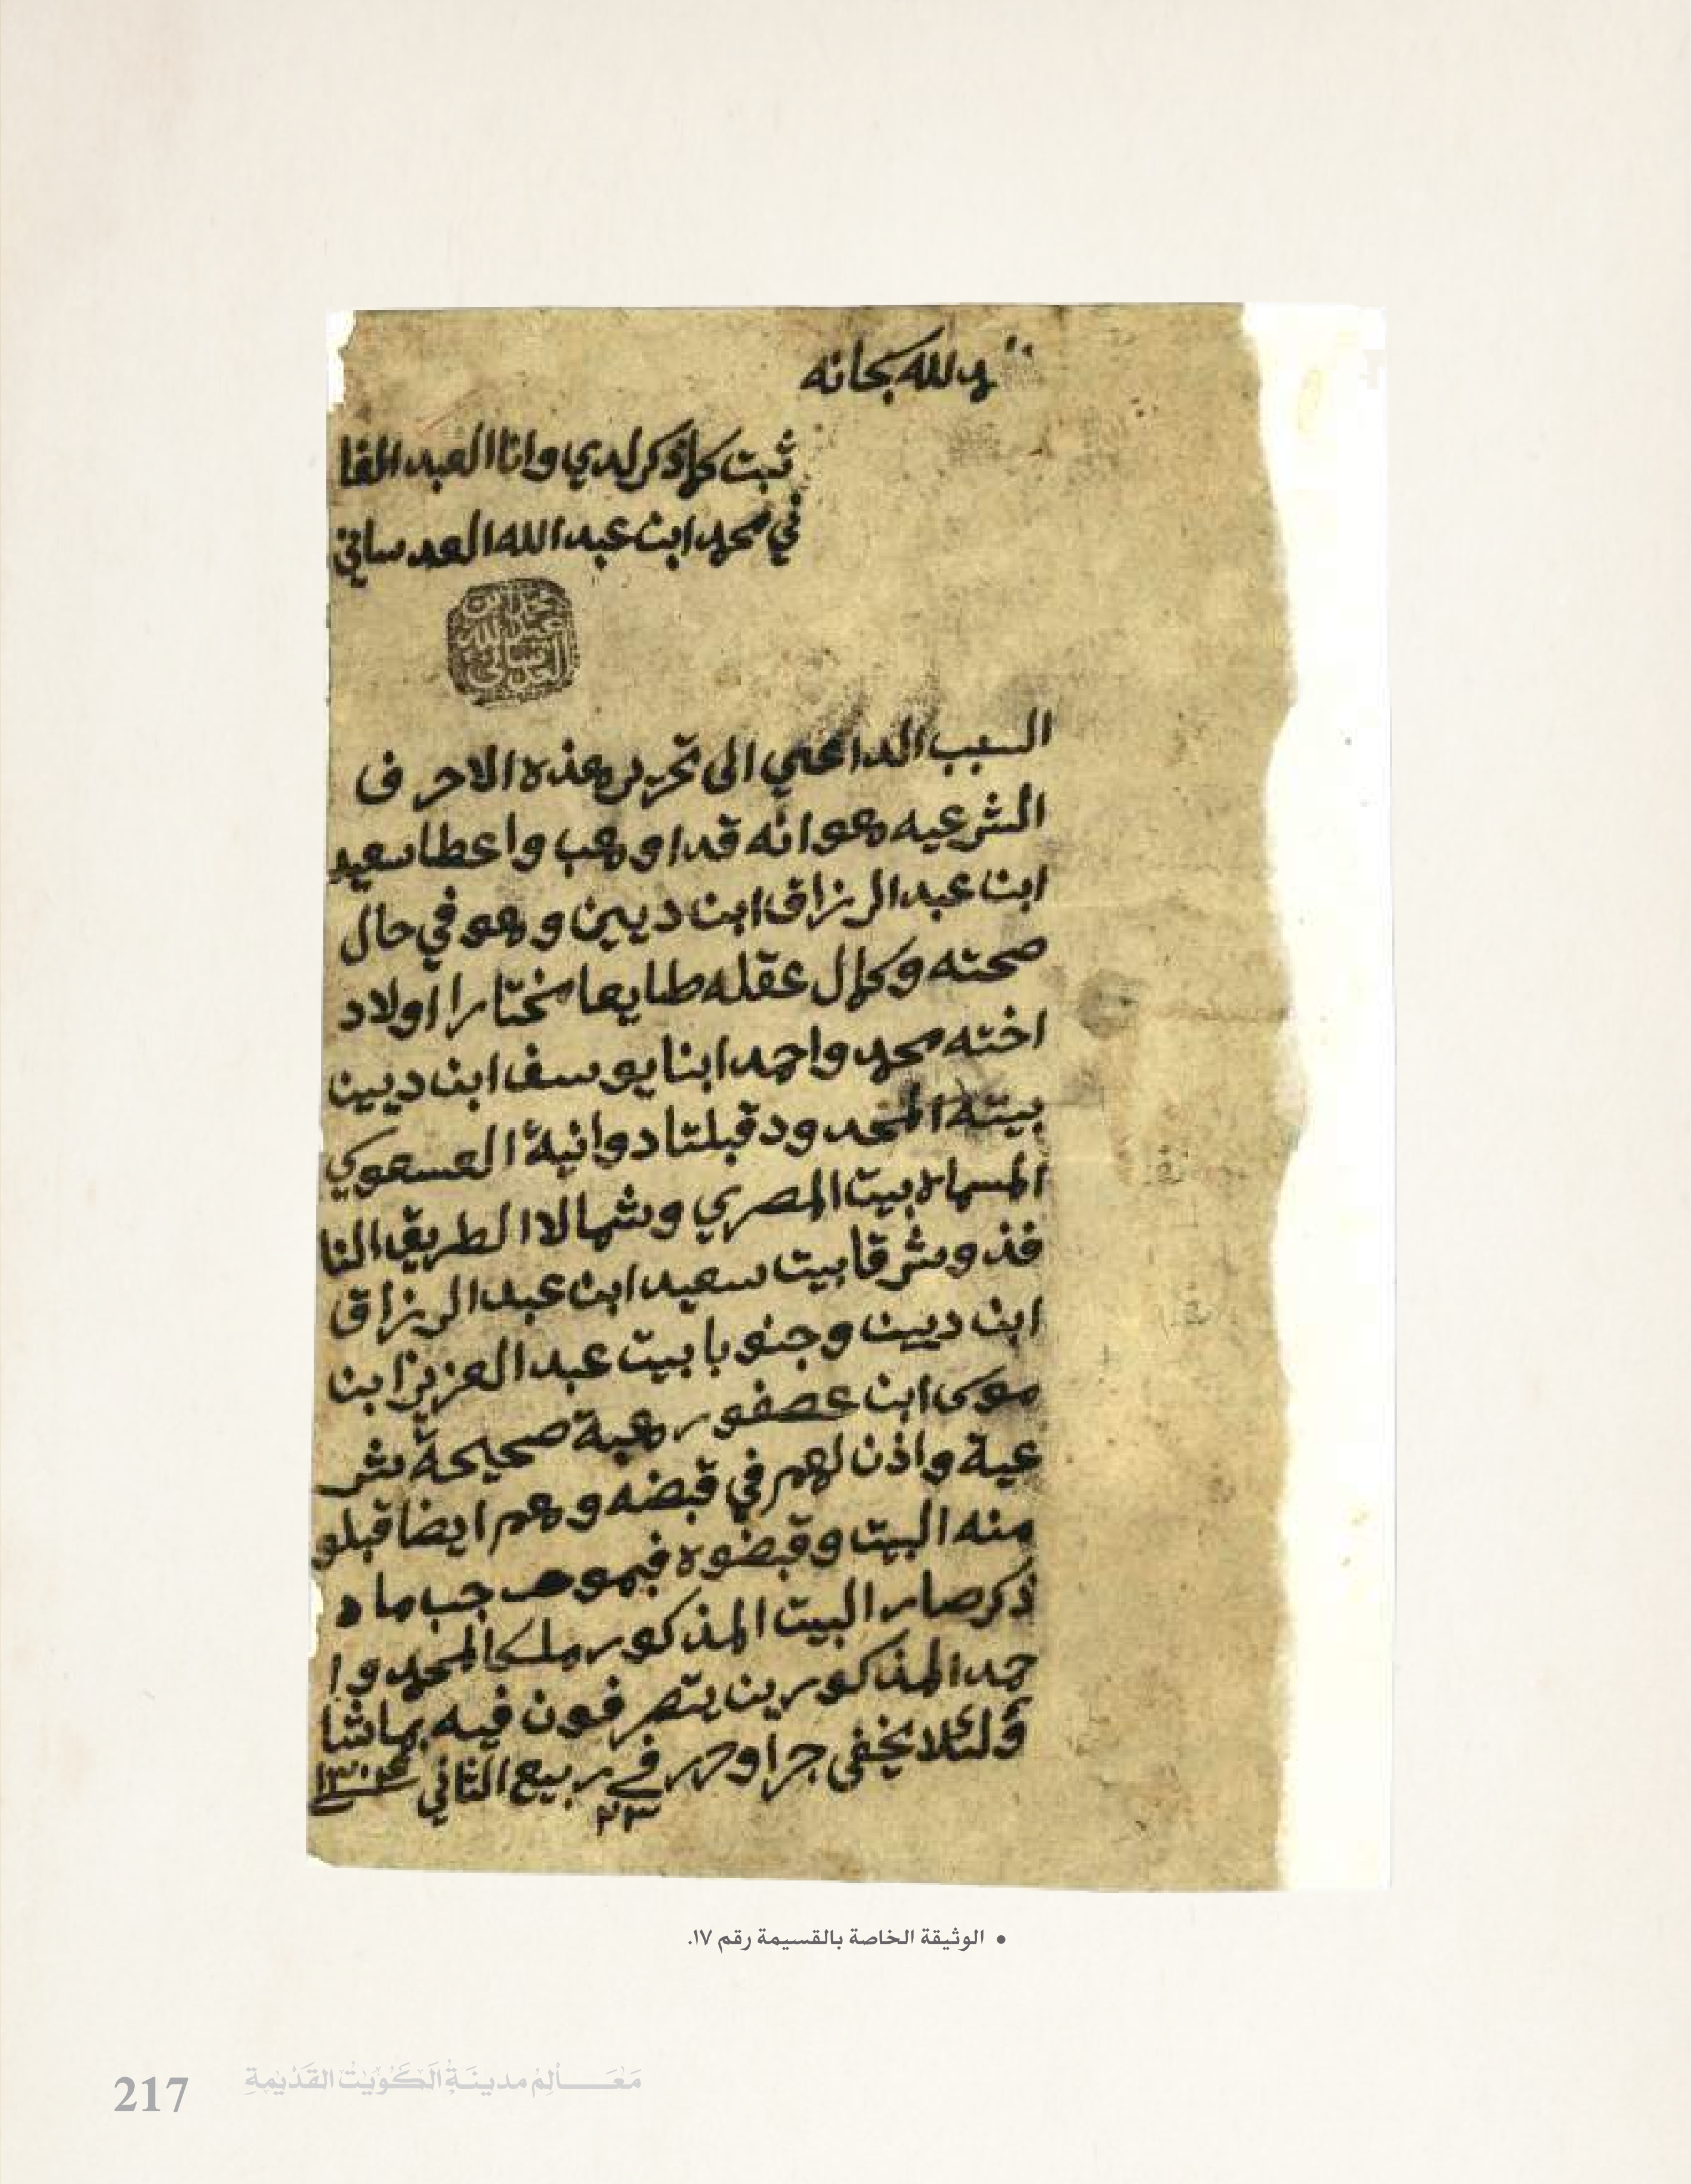 الحمد لله سبحانه
ثبت كلما ذكر لدي وانا العبد الفا
ني محمد ابن عبد الله العدساني
السبب الداعي الى تحرير هذه الاحرف
الشرعيه هو انه قد اوهب واعطا سعيد
ابن عبد الرزاق ابن ديين وهو في حال
صحته وكمال عقله طايعا مختارا اولاد
اخته محمد واحمد ابنا يوسف ابن ديين
بيته المحدود قبلتا دوانية العسعوسي
المسماة بيت المصري وشمالا الطريق النا
فذ وشرقا بيت سعيد ابن عبد الرزاق
ابن ديين وجنوبا بيت عبد العزيز ابن
موسى ابن عصفور هبة صحيحة شر
عية واذن لهم في قبضه وهم ايضا قبلو
منه البيت وقبضوه فبموجب ما
ذكر صار البيت المذكور ملكا لمحمد وا
حمد المذكورين يتصرفون فيه بما شا
ؤ لئلا يخفى جرا وحرر في ربيع الثاني
٢٣
• الوثيقة الخاصة بالقسيمة رقم ١٧.
217 مَعَالِمُ مدينَةِ الكُوَيْتُ القَدْيمَةِ